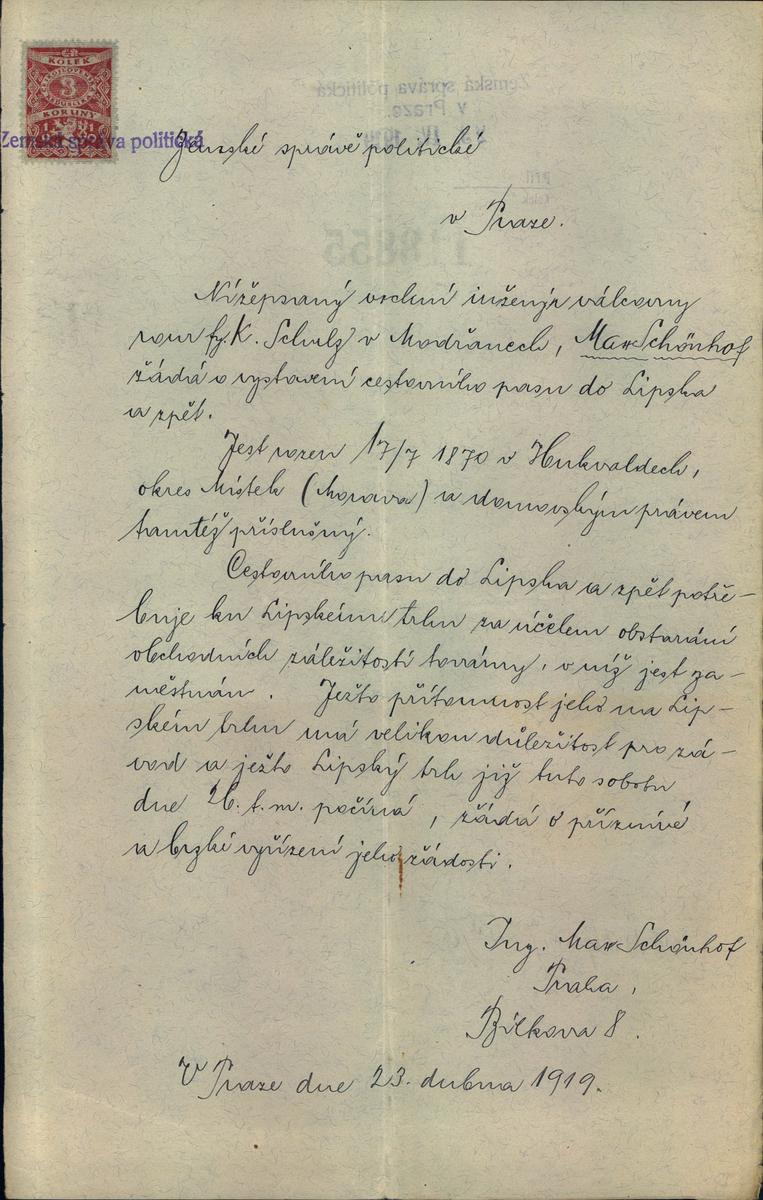 ČR
KOLEK
3
KORUNY
Zemská správa politická
Zemská správa politická
v Praze.
118855
Zemské správě politické
v Praze.
Nížepsaný vrchní inženýr válcovny
rour fy. K. Schulz v Modřanech, Max Schönhof
žádá o vystavení cestovního pasu do Lipska
a zpět.
Jest rozen 17/7 1870 v Hukvaldech,
okres Místek (Morava) a domovským právem
tamtéž příslušný.
Cestovního pasu do Lipska a zpět potře-
buje ku Lipskému trhu za účelem obstarání
obchodních záležitostí továrny, v níž jest za-
městnán. Ježto přítomnost jeho na Lip-
ském trhu má velikou důležitost pro zá-
vod a ježto Lipský trh již tuto sobotu
dne 26. t. m. počíná, žádá o příznivé
a brzké vyřízení jeho žádosti.
Ing. Max Schönhof
Praha,
Bílkova 8.
V Praze dne 23. dubna 1919.